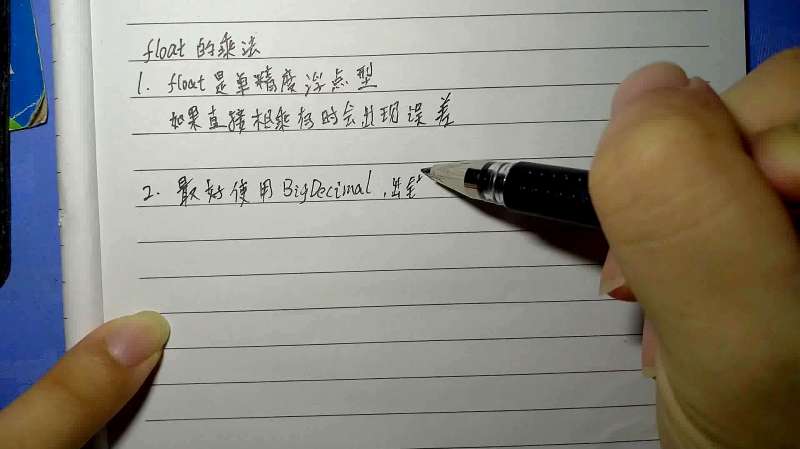 float的乘法
1. float是单精度浮点型
如果直接相乘有时会出现误差
2. 最好使用BigDecimal,出